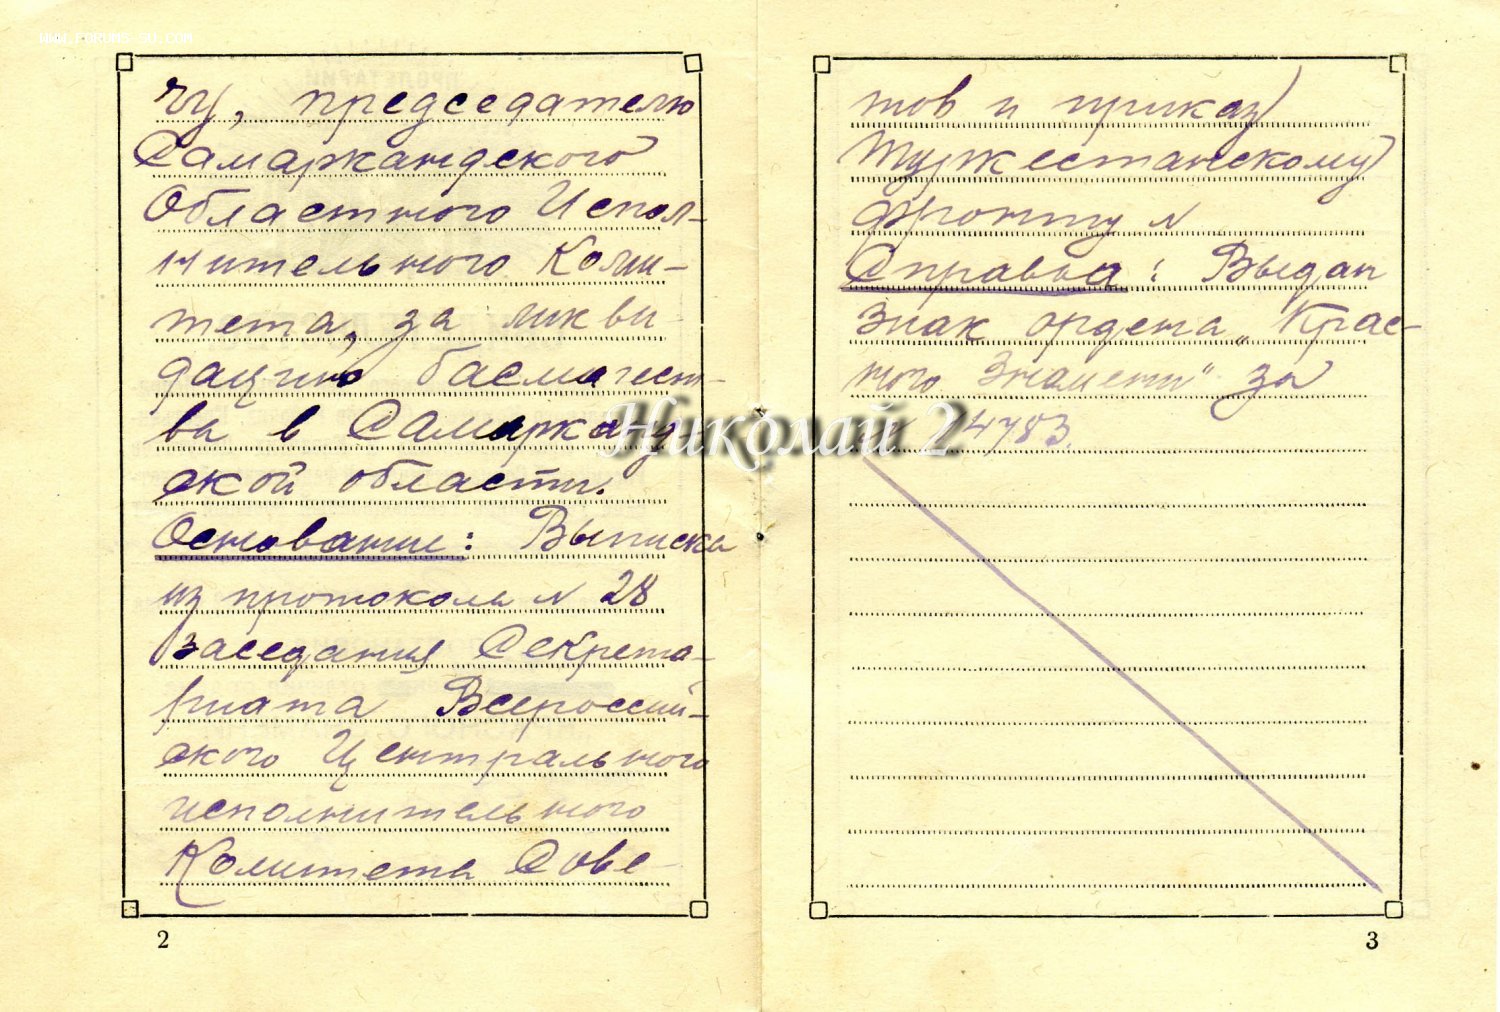 WWW.FORUMS-SU.COM
чу, председателю
Самаркандского
Областного Испол-
нительного Коми-
тета, за ликви-
дацию басмачест-
ва в Самарканд-
ской области.
Основание: Выписка
из протокола N 28
заседания Секрета-
риата Всероссий-
ского Центрального
исполнительного
Комитета Сове-
2
тов и приказ
Туркестанскому
фронту N
Справка: Выдан
знак ордена „Крас-
ного Знамени" за
14783.
3
Николай 2